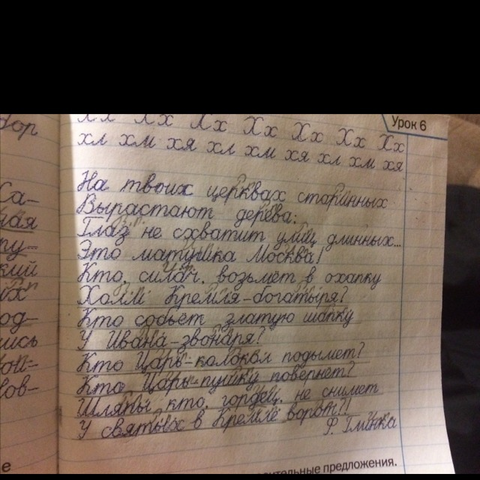 Урок 6
Хх Хх Хх Хх Хх Хх Хх
хл хм хя хл хм хя хл хм хя
На твоих церквах старинных
Вырастают дерева:
Глаз не схватит улиц длинных...
Это матушка Москва!
Кто, силач, возьмет в охапку
Холм Кремля-богатыря?
Кто собьет златую шапку
У Ивана-звонаря?
Кто Царь-колокол подымет?
Кто Царь-пушку повернет?
Шляпы кто, гордец, не снимет
У святых в Кремле ворот?!
Ф. Глинка
предложения.